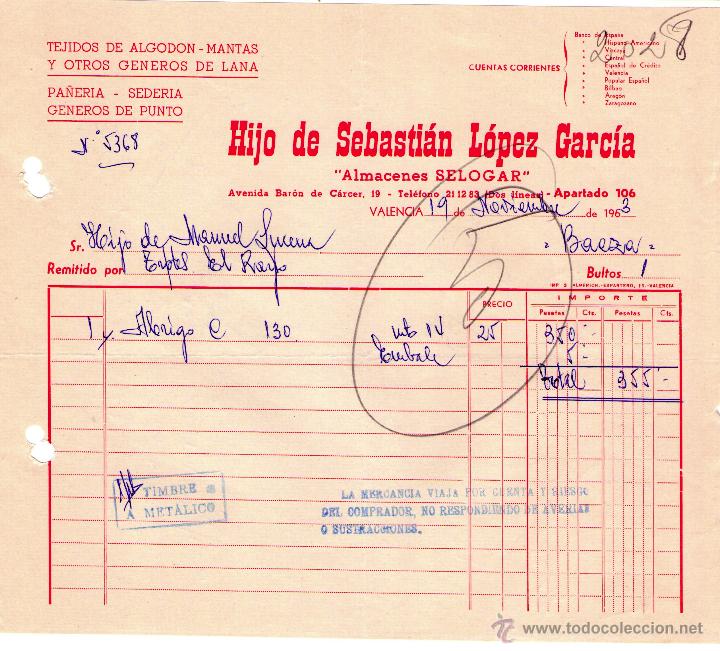 TEJIDOS DE ALGODON - MANTAS
Y OTROS GENEROS DE LANA
PAÑERIA - SEDERIA
GENEROS DE PUNTO
Nº 5368
CUENTAS CORRIENTES
Banco de España
» Hispano Americano
» Vizcaya
» Central
» Español de Crédito
» Valencia
» Popular Español
» Bilbao
» Aragón
» Zaragozano
Hijo de Sebastián López García
"Almacenes SELOGAR"
Avenida Barón de Cárcer, 19 - Teléfono 21 12 83 (Dos líneas) - Apartado 106
VALENCIA 19 de Noviembre de 1963
Sr. Hijo de Manuel Lucena " Baeza "
Remitido por Tptes El Rayo Bultos 1
IMP. J. ALMERICH.-ESPARTERO, 11.-VALENCIA
PRECIO IMPORTE
Pesetas Cts. Pesetas Cts.
1 C 130 25 350 -
5 -
Total 355 -
TIMBRE
A METÁLICO
LA MERCANCIA VIAJA POR CUENTA Y RIESGO
DEL COMPRADOR, NO RESPONDIENDO DE AVERIAS
O SUSTRACCIONES.
5
www.todocoleccion.net